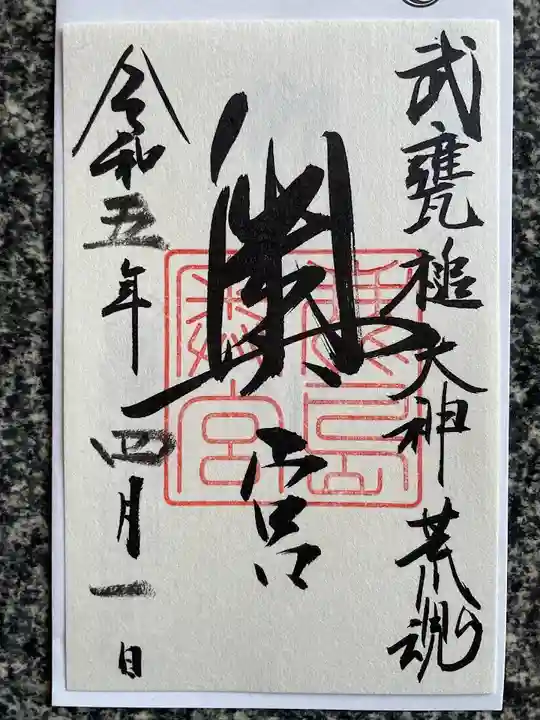 武甕槌大神荒魂
奥宮
令和五年四月一日
鹿島奥宮